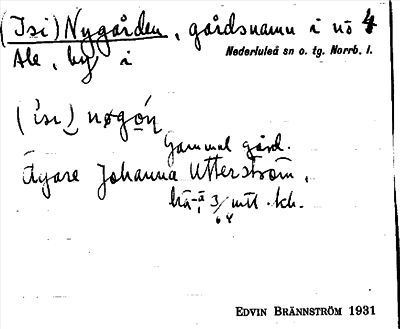 (Isi) Nygården, gårdsnamn i nö 4
Ale, by i
Nederluleå sn o. tg. Norrb. l.
(isi) nøgọ́n
Gammal gård.
Ägare Johanna Utterström,
3/64 mtt. kh.
EDVIN BRÄNNSTRÖM 1931